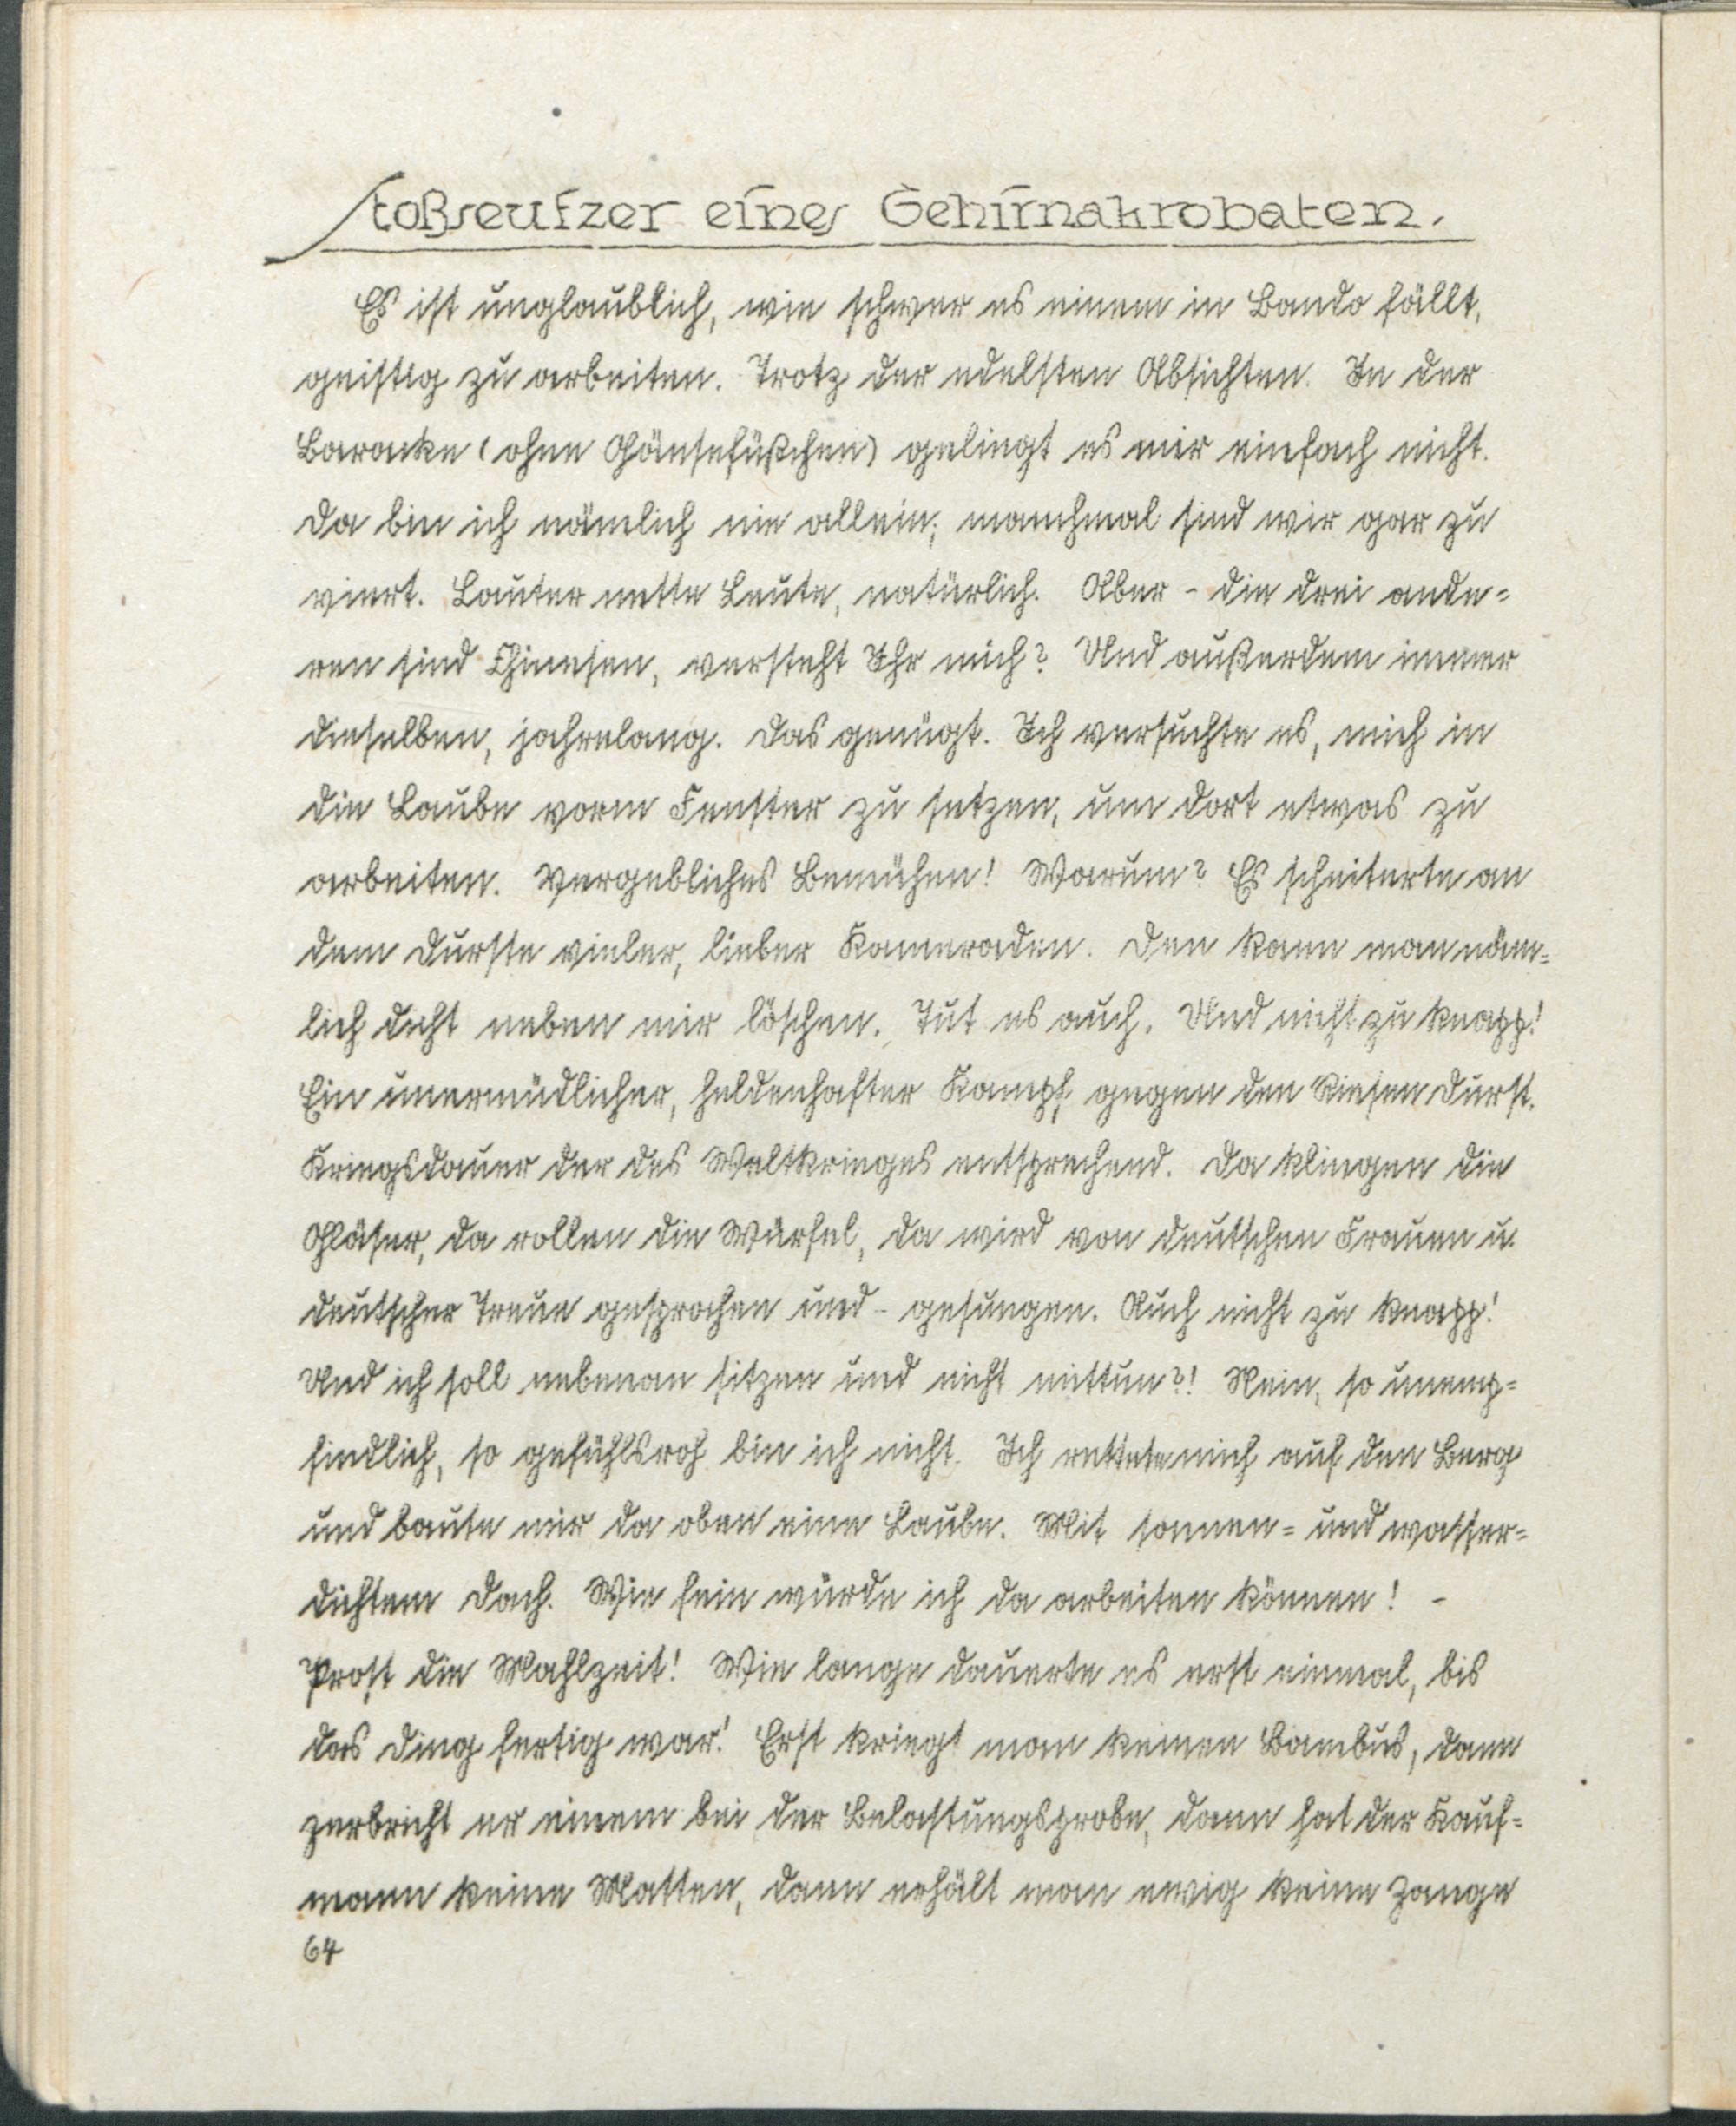 Stoßseufzer eines Gehirnakrobaten.
Es ist unglaublich, wie schwer es einem in Bando fällt,
geistig zu arbeiten. Trotz der edelsten Absichten. In der
Baracke (ohne Gänsefüßchen) gelingt es mir einfach nicht.
Da bin ich nämlich nie allein; manchmal sind wir gar zu
viert. Lauter nette Leute, natürlich. Aber - die drei ande=
ren sind Chinesen, versteht Ihr mich? Und außerdem immer
dieselben, jahrelang. Das genügt. Ich versuchte es, mich in
die Laube vorm Fenster zu setzen, um dort etwas zu
arbeiten. Vergebliches Bemühen! Warum? Es scheiterte an
dem Durste vieler, lieber Kameraden. Den kann man näm=
lich dicht neben mir löschen. Tut es auch. Und nicht zu knapp!
Ein unermüdlicher, heldenhafter Kampf gegen den Riesen Durst.
Kriegsdauer der des Weltkrieges entsprechend. Da klingen die
Gläser, da rollen die Würfel, da wird von deutschen Frauen u.
deutscher Treue gesprochen und - gesungen. Auch nicht zu knapp!
Und ich soll nebenan sitzen und nicht mittun?! Nein, so unemp=
findlich, so gefühlsroh bin ich nicht. Ich rettete mich auf den Berg
und baute mir da oben eine Laube. Mit sonnen= und wasser=
dichtem Dach. Wie fein würde ich da arbeiten können! -
Prost die Mahlzeit! Wie lange dauerte es erst einmal, bis
das Ding fertig war! Erst kriegt man keinen Bambus, dann
zerbricht er einem bei der Belastungsprobe, dann hat der Kauf=
mann keine Matten, dann erhält man ewig keine Zange
64